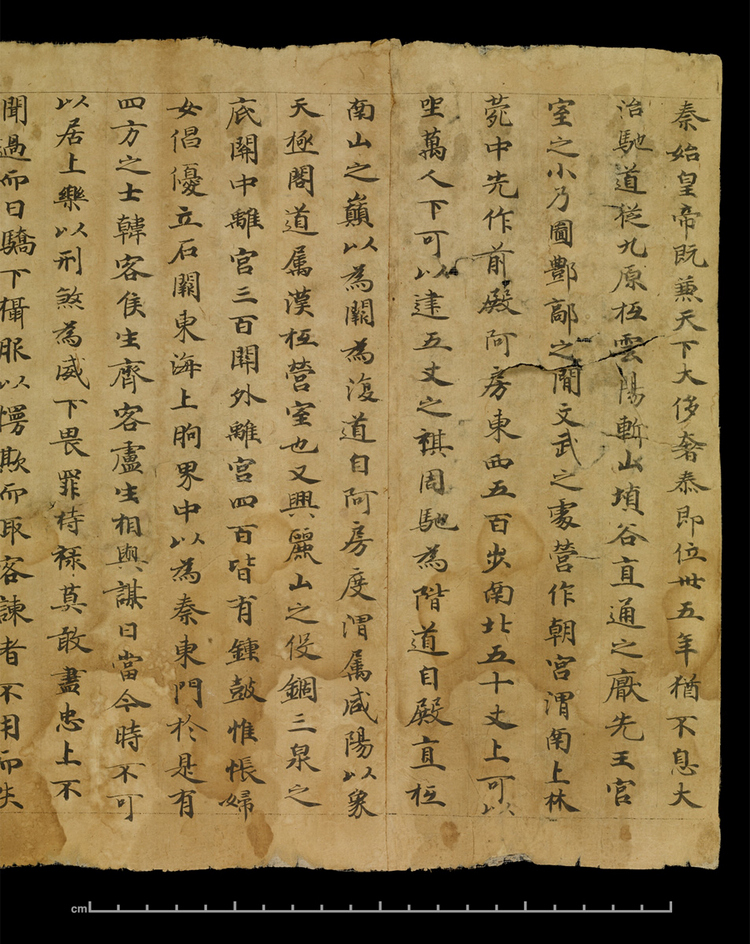 秦始皇帝既兼天下大侈奢泰即位卅五年猶不息大
治馳道從九原抵雲陽塹山填谷直通之厭先王宮
室之小乃圖酆鄗之間文武之處營作朝宮渭南上林
菀中先作前殿阿房東西五百步南北五十丈上可以
坐萬人下可以建五丈之旗周馳為階道自殿直抵
南山之巔以為闕為復道自阿房度渭屬咸陽以象
天極閣道屬漢抵營室也又興麗山之役錮三泉之
底關中離宮三百關外離宮四百皆有鍾鼓帷帳婦
女倡優立石闕東海上朐界中以為秦東門於是有
四方之士韓客侯生齊客盧生相與謀曰當今時不可
以居上樂以刑煞為威下畏罪持祿莫敢盡忠上不
聞過而日驕下攝服以慢欺而取容諫者不用而失
cm